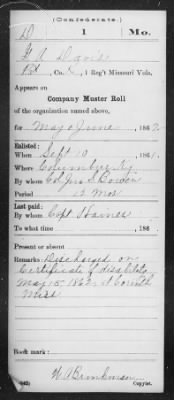 (Confederate.)
D 1 Mo.
Davis
Pvt, Co. , 1 Reg't Missouri Vols.
Appears on
Company Muster Roll
of the organization named above,
for May & June, 186 .
Enlisted:
When Sept 10, 1861.
Where Columbus Ky
By whom Col Jno S Bowen
Period 12 Mos
Last paid:
By whom Capt Haines
To what time , 186 .
Present or absent
Remarks: Discharged on
Certificate of disability
May 15 1862 at Corinth
Miss
Book mark:
(642)
Copyist.